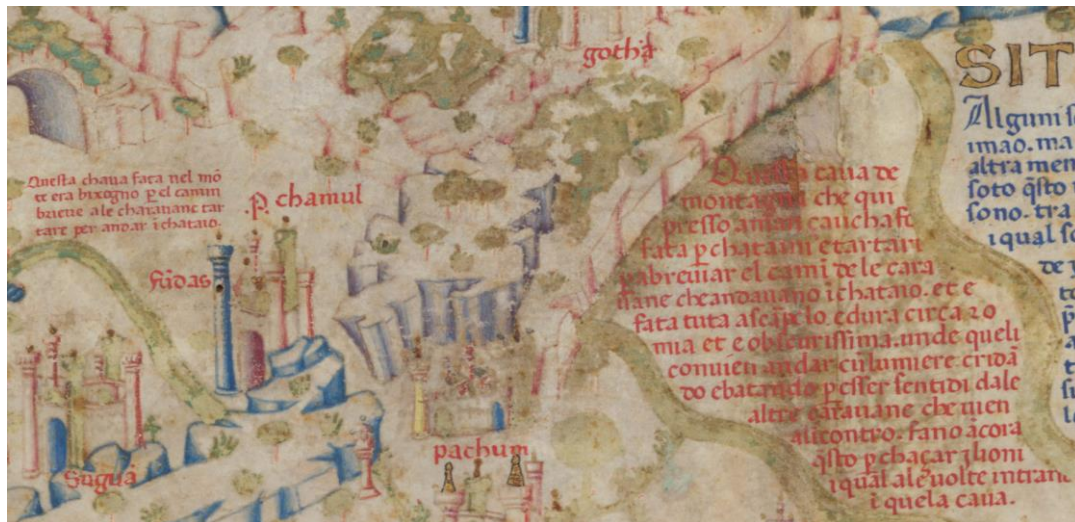 gotha
SIT
Alguni
imao. ma
altra men
soto q̄sto
sono. tra
i qual so
Questa chaua fata nel mō
te era bixogno p̱ el camin
brieue a le charauane tar
tare per andar ī chataio.
.P. chamul
fūdas
Suguā
pachum
Questa caua de
montagna che qui
presso a man cancha fo
fata p̱ chataini e tartari
p̱ abreuiar el camī de le cara
uane che andauano ī chataio. et e
fata tuta a scapelo. e dura circa 20
mia et e obscurissima. unde queli
conuien andar cū lumiere cridā
do e batando p̱ esser sentidi dale
altre carauane che uien
a li contro. fano ācora
q̄sto p̱ chaçar i lioni
i qual ale uolte intrano
i quela caua.